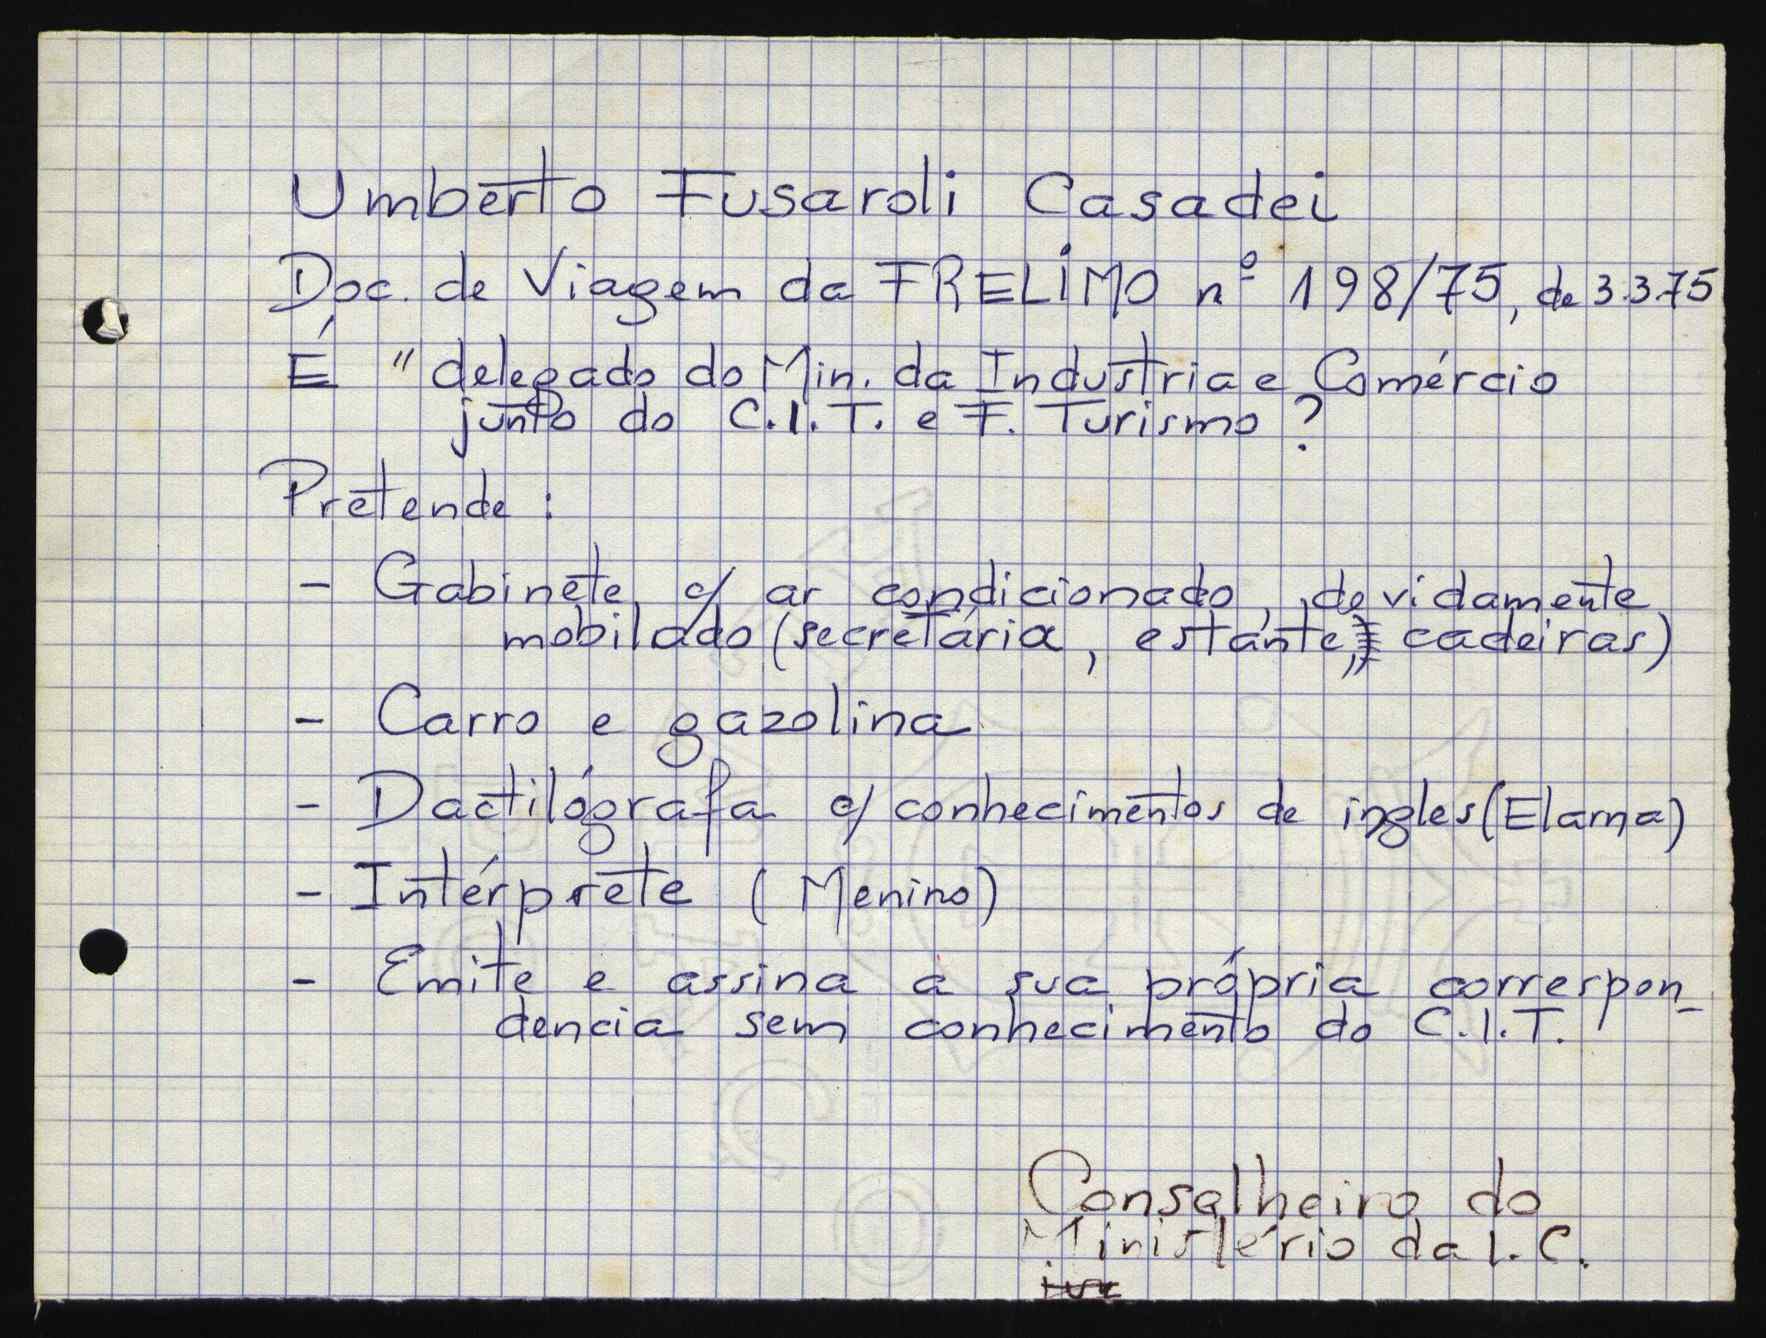 Umberto Fusaroli Casadei
Doc. de Viagem da FRELIMO nº 198/75, de 3.3.75
É "delegado do Min. da Industria e Comércio
junto do C.I.T. e F. Turismo?
Pretende:
- Gabinete c/ ar condicionado, devidamente
mobilado (secretária, estante, cadeiras)
- Carro e gazolina
- Dactilógrafa c/ conhecimentos de ingles (Elarna)
- Intérprete (Menino)
- Emite e assina a sua própria correspon-
dencia sem conhecimento do C.I.T.
Conselheiro do
Ministério da I.C.